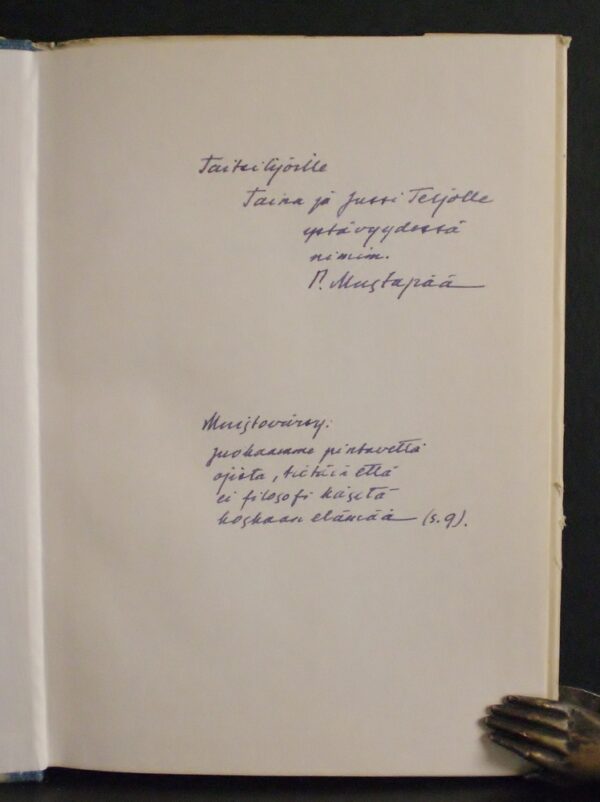 Taitsilijoille
Taina ja Jussi Teljolle
ystävyydessä
nimim.
P. Mustapää
Muistovärsy:
juokaamme pintavettä
ojista, tietäin että
ei filosofi käsitä
koskaan elämää (s. 9).